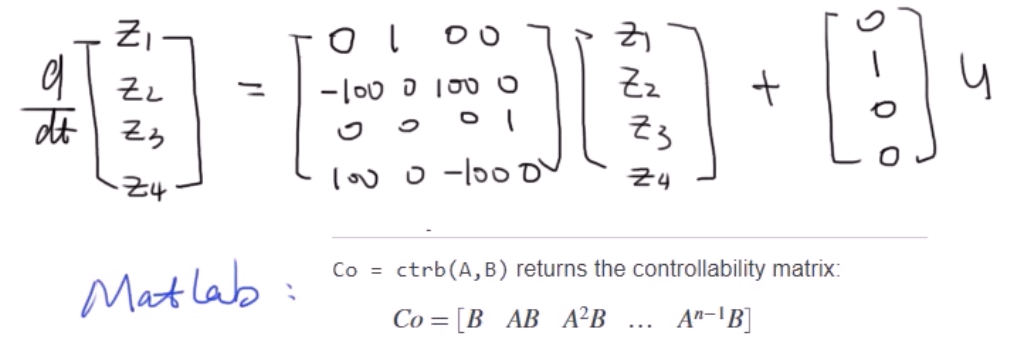 d/dt [z₁ z₂ z₃ z₄] = [0 1 0 0; -100 0 100 0; 0 0 0 1; 100 0 -100 0] [z₁ z₂ z₃ z₄] + [0 1 0 0] u
Matlab :
Co = ctrb(A,B) returns the controllability matrix:
Co = [B AB A²B ... Aⁿ⁻¹B]